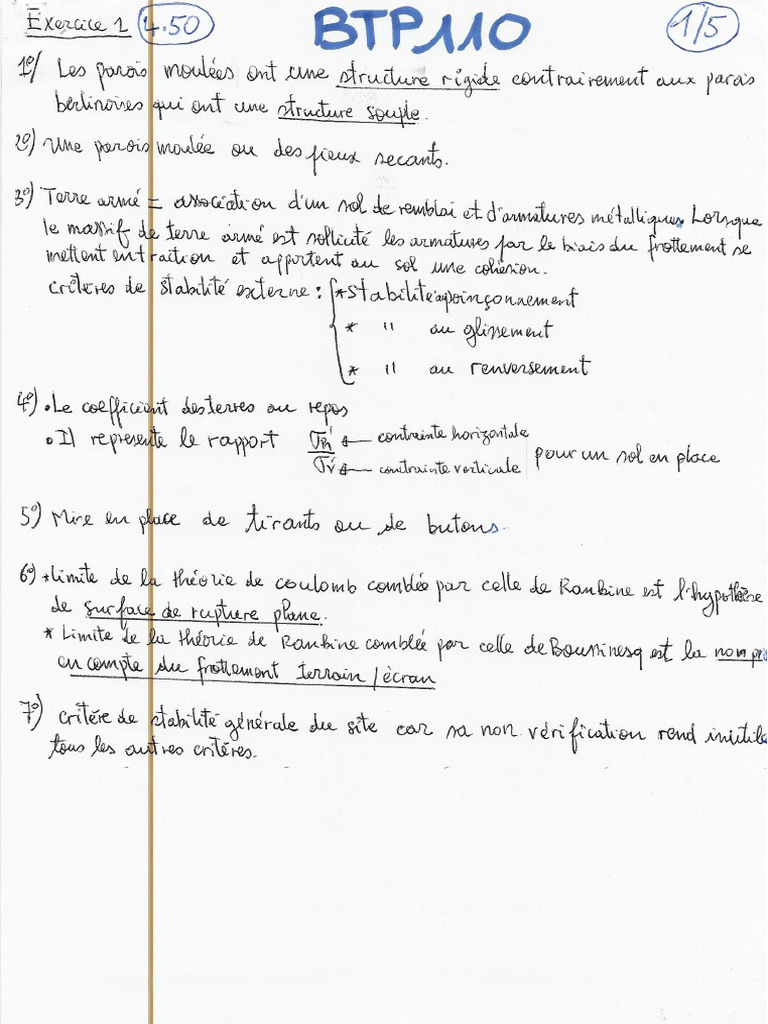 Exercice 1 4.50 BTP110 1/5
1°/ Les parois moulées ont une structure rigide contrairement aux parois
berlinoises qui ont une structure souple.
2°) Une parois moulée ou des pieux secants.
3°) Terre armé = association d'un sol de remblai et d'armatures métalliques. Lorsque
le massif de terre armé est sollicité les armatures par le biais du frottement se
mettent en traction et apportent au sol une cohésion.
critères de stabilité externe : * stabilité au poinçonnement
* " au glissement
* " au renversement
4°) • Le coefficient des terres au repos
• Il represente le rapport σ'h ← contrainte horizontale
σ'v ← contrainte verticale pour un sol en place
5°) Mise en place de tirants ou de butons.
6°) * Limite de la théorie de coulomb comblée par celle de Rankine est l'hypothèse
de surface de rupture plane.
* Limite de la théorie de Rankine comblée par celle de Boussinesq est la non pri
en compte du frottement terrain/écran
7°) critère de stabilité générale du site car sa non vérification rend inutile
tous les autres critères.